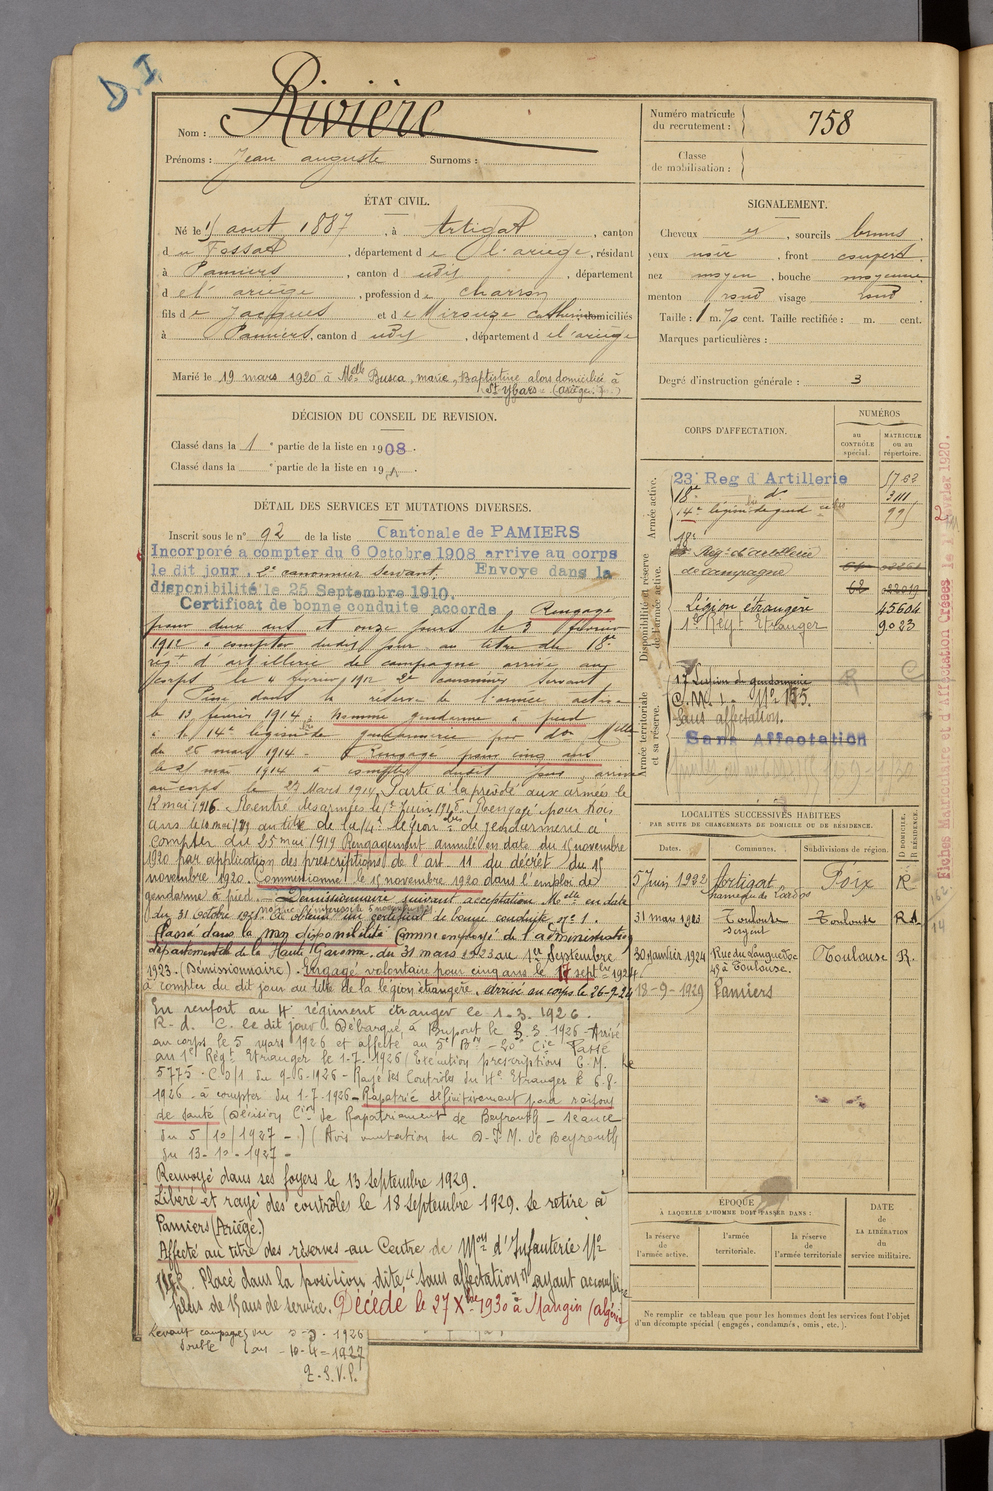 D.I.
Nom : Rivière
Prénoms : Jean auguste Surnoms :
Numéro matricule du recrutement : 758
Classe de mobilisation :
ÉTAT CIVIL.
Né le 15 aout 1887, à Artigat, canton
du Fossat, département de l'ariège, résidant
à Pamiers, canton d udit, département
d el' ariège, profession de charron
fils de Jacques et de Mirouze domiciliés
à Pamiers, canton d udit, département d el'ariège
Marié le 19 mars 1920 à Melle Busca, marie, Baptistine alors domiciliée à
St Ybars (Ariège)
SIGNALEMENT.
Cheveux , sourcils bruns
yeux noir, front couvert
nez moyen, bouche moyenne
menton rond visage rond
Taille : 1 m. 70 cent. Taille rectifiée : m. cent.
Marques particulières :
Degré d'instruction générale : 3
DÉCISION DU CONSEIL DE REVISION.
Classé dans la 1e partie de la liste en 1908.
Classé dans la e partie de la liste en 19
DÉTAIL DES SERVICES ET MUTATIONS DIVERSES.
Inscrit sous le n° 92 de la liste Cantonale de PAMIERS
Incorporé a compter du 6 Octobre 1908 arrive au corps
le dit jour. 2e canonnier servant. Envoye dans la
disponibilité le 25 Septembre 1910.
Certificat de bonne conduite accorde Rengagé
pour deux ans et onze jours le 3 février
1912 à compter dudit jour au titre du 18e
régt d'artillerie de campagne arrivé au
corps le 4 février 1912 2e canonnier servant
Passé dans la réserve de l'armée active
le 13 février 1914. Nommé gendarme à pied
à la 14e légion de gendarmerie par Mlle
du 25 mars 1914 - Rengagé pour cinq ans
le 25 mai 1914 à compter dudit jour, arrivé
au corps le 27 Mars 1914. Parti à la prévôté aux armées le
12 mai 1916. Rentré des armées le 1er Juin 1918. Rengagé pour trois
ans le 10 mai 1919 au titre de la 14e légion de gendarmerie à
compter du 25 mai 1919 Rengagement annulé en date du 15 novembre
1920 par application des prescriptions de l'art. 11 du décret du 15
novembre 1920. Commissionné le 15 novembre 1920 dans l'emploi de
gendarme à pied. Démissionnaire suivant acceptation Melle en date
du 31 octobre 1921. A obtenu un certificat de bonne conduite n° 1.
Passé dans la non disponibilité comme employé de l'administration
départementale de la Haute Garonne. du 31 mars 1923 au 1er Septembre
1923. (Démissionnaire). Engagé volontaire pour cinq ans le 17 septbre 1924
à compter du dit jour au titre de la légion étrangère. arrivé au corps le 26-9-24
En renfort au 4e régiment étranger le 1-3-1926.
R. d. C. le dit jour. Débarqué à le 3.3.1926 - Arrivé
au corps le 5 mars 1926 et affecté au 5e Bn - 20e Cie Passé
au 1er Régt Etranger le 1-7-1926 (Exécution prescriptions C.M.
5775. C.D/1 du 9-6-1926 - Rayé des Contrôles du 4e Etranger le 6-8-
1926 - à compter du 1-7-1926 - Rapatrié définitivement pour raisons
de santé (Décision Cion de Rapatriement de Beyrouth - séance
du 5/10/1927 -) (Avis mutation du D.I.M. de Beyrouth
du 13-10-1927 -
Renvoyé dans ses foyers le 13 septembre 1929.
Libéré et rayé des contrôles le 18 septembre 1929. Se retire à
Pamiers (Ariège.)
Affecté au titre des réserves au Centre de Mon d'Infanterie No
. Placé dans la position dite "sans affectation" ayant accompli
plus de 15 ans de service. Décédé le 27 Xbre 1930 à Mangin (algérie)
Levant campagne du 3-3-1926
double au -10-4-1927
T.S.V.P.
CORPS D'AFFECTATION.
NUMÉROS
au CONTRÔLE spécial.
MATRICULE ou au répertoire.
Armée active.
23e Reg d'Artillerie 5763
18e do 3111
14e légion de gend 995
Disponibilité et réserve de l'armée active.
18e Régt d'artillerie
de campagne
62 02019
Légion étrangère 45604
1er Régt Etranger 9023
Armée territoriale et sa réserve.
17 Légion de gendarmerie
C.M.I. No 155.
Sans affectation.
Sans Affectation
R
C
LOCALITÉS SUCCESSIVES HABITÉES
PAR SUITE DE CHANGEMENTS DE DOMICILE OU DE RÉSIDENCE.
Dates. Communes. Subdivisions de région. D DOMICILE. R RÉSIDENCE.
5 Juin 1922 Artigat Foix R
31 mars 1923 Toulouse Toulouse R A
30 janvier 1924 Rue du Languedoc Toulouse R.
45 à Toulouse.
18-9-1929 Pamiers
ÉPOQUE
À LAQUELLE L'HOMME DOIT PASSER DANS :
la réserve de l'armée active.
l'armée territoriale.
la réserve de l'armée territoriale
DATE de LA LIBÉRATION du service militaire.
Ne remplir ce tableau que pour les hommes dont les services font l'objet
d'un décompte spécial (engagés, condamnés, omis, etc.).
Fiches Matriculaire et d'Affectation Créées le 12 Février 1920.